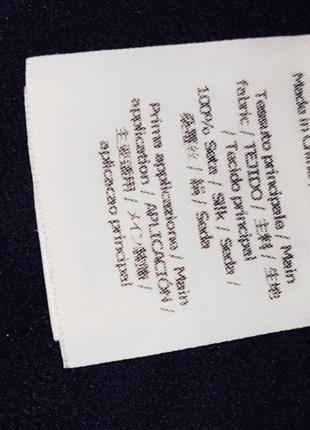 Made in China
Tessuto principale / Main
fabric / TEJIDO / 主料 / 生地
/ Tecido principal
100% Seta / Silk / Seda /
桑蚕丝 / 絹 / Seda
Prima applicazione / Main
application / APLICACIÓN /
主要适用 / メイン装飾 /
aplicacao principal